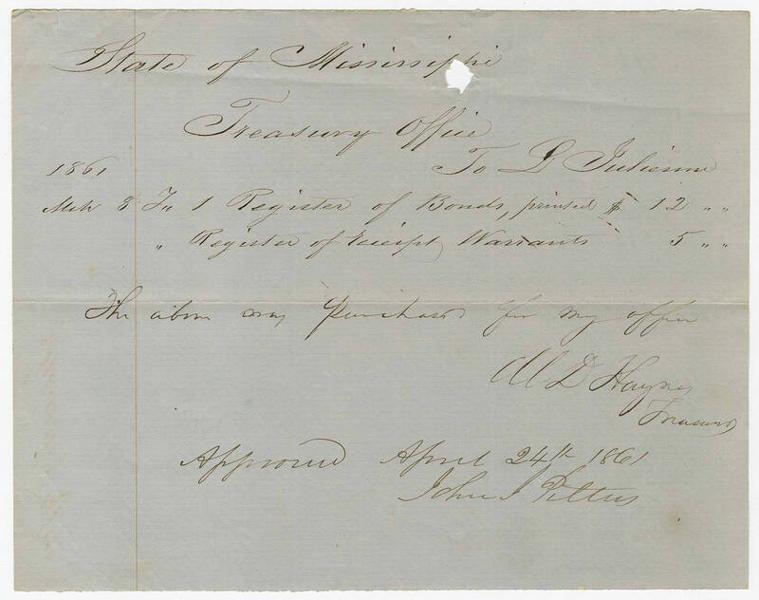 State of Mississippi
Treasury Office
To L Julienne
1861
Mch 8 To 1 Register of Bonds, printed $ 12 " "
" Register of Receipt Warrants 5 " "
The above was purchased for my office
M D Haynes
Treasurer
Approved April 24th 1861
John J Pettus